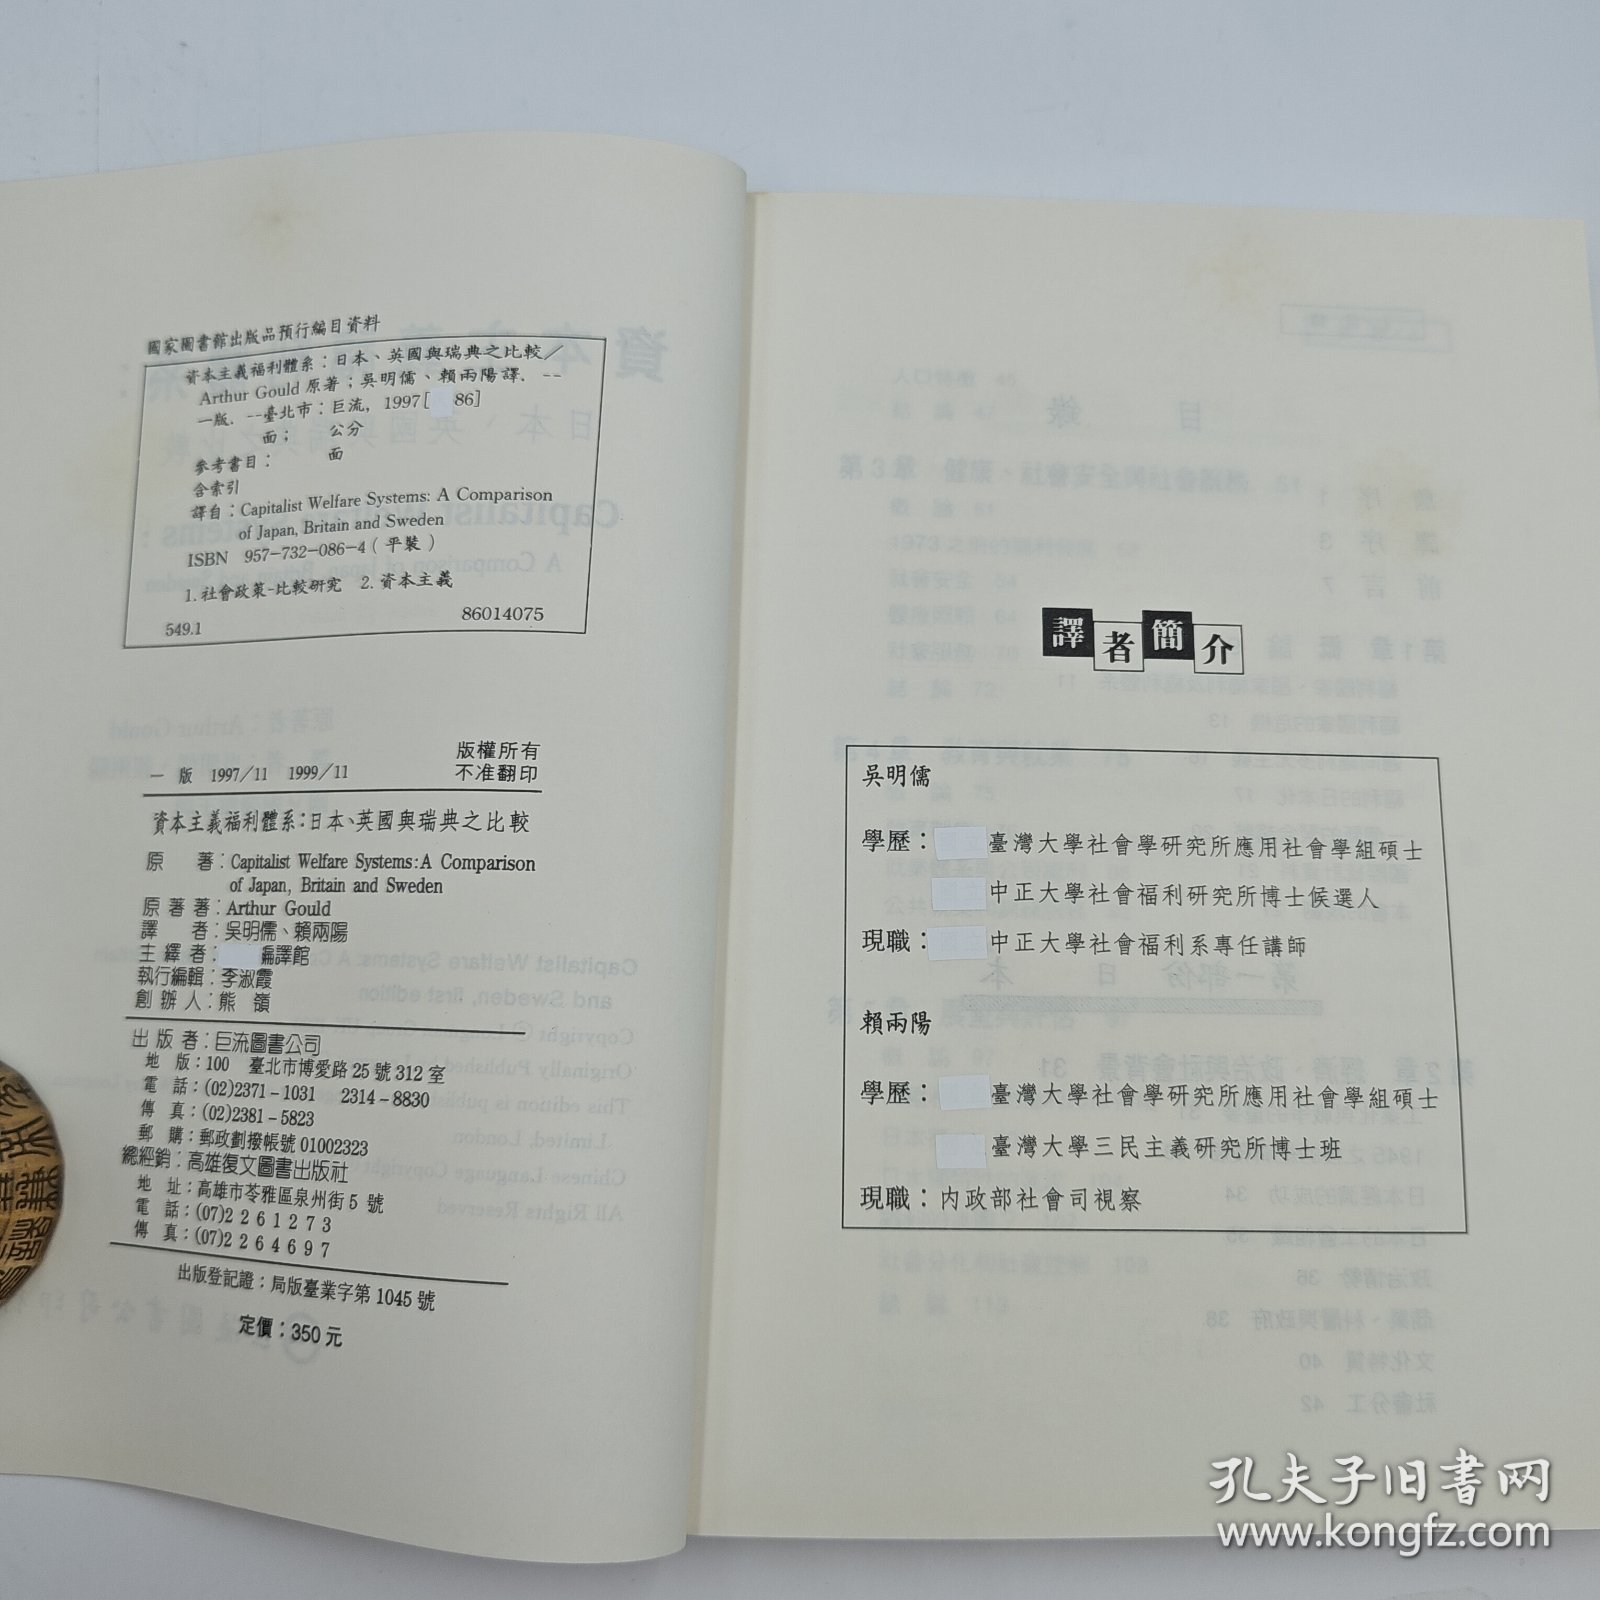 國家圖書館出版品預行編目資料
資本主義福利體系:日本、英國與瑞典之比較/
Arthur Gould 原著;吳明儒、賴兩陽譯. --
一版. --臺北市:巨流, 1997[ 86]
面; 公分
參考書目: 面
含索引
譯自:Capitalist Welfare Systems: A Comparison
of Japan, Britain and Sweden
ISBN 957-732-086-4(平裝)
1.社會政策-比較研究 2.資本主義
549.1 86014075
版權所有
不准翻印
一 版 1997/11 1999/11
資本主義福利體系:日本、英國與瑞典之比較
原 著:Capitalist Welfare Systems:A Comparison
of Japan, Britain and Sweden
原 著 著:Arthur Gould
譯 者:吳明儒、賴兩陽
主 繹 者: 編譯館
執行編輯:李淑霞
創 辦 人:熊 嶺
出 版 者:巨流圖書公司
地 版:100 臺北市博愛路25號312室
電 話:(02)2371-1031 2314-8830
傳 真:(02)2381-5823
郵 購:郵政劃撥帳號01002323
總經銷:高雄復文圖書出版社
地 址:高雄市苓雅區泉州街5號
電 話:(07)2261273
傳 真:(07)2264697
出版登記證:局版臺業字第1045號
定價:350元
譯者簡介
吳明儒
學歷: 臺灣大學社會學研究所應用社會學組碩士
中正大學社會福利研究所博士候選人
現職: 中正大學社會福利系專任講師
賴兩陽
學歷: 臺灣大學社會學研究所應用社會學組碩士
臺灣大學三民主義研究所博士班
現職:內政部社會司視察
孔夫子旧书网
www.kongfz.com